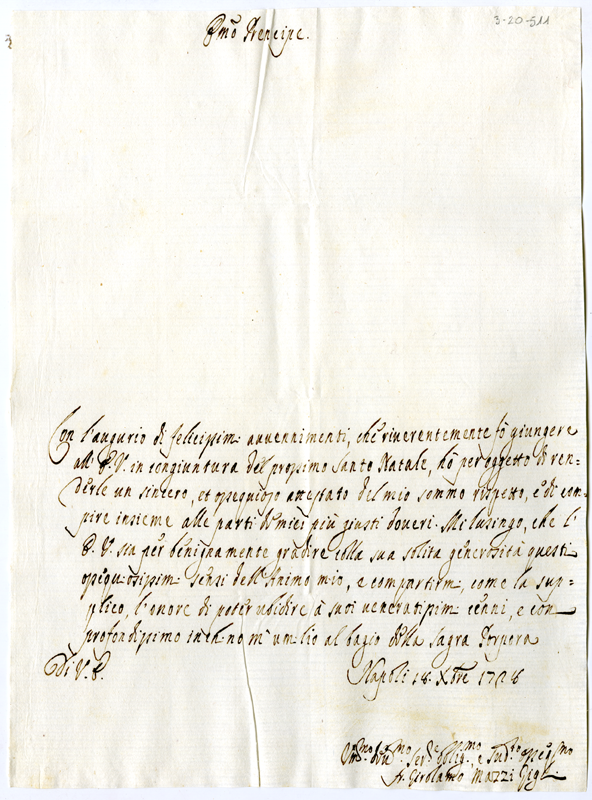 3-20-511
Em̄o Prencipe.
Con l'augurio di felicissim. auvennimenti, che riverentemente fò giungere
all' E. V. in congiuntura del prossimo Santo Natale, hò per oggetto di ren=
derle un sincero, et ossequioso attestato del mio sommo rispetto, e di com=
pire insieme alle parti de miei più giusti doveri. Mi lusingo, che l'
E. V. sia per benignamente gradire colla sua solita generosità questi
ossequiosissim. sensi dell'Animo mio, e compartirm., come la sup=
plico, l'onore di poter ubidire à suoi veneratissim. cenni, e con
profondissimo inchino m' umilio al bagio della Sagra Porpora
Di V. E. Napoli 18. Xbre 1728
Um.mo Div.mo Ser.e Oblig.mo e
Fr. Girolamo Mazzi